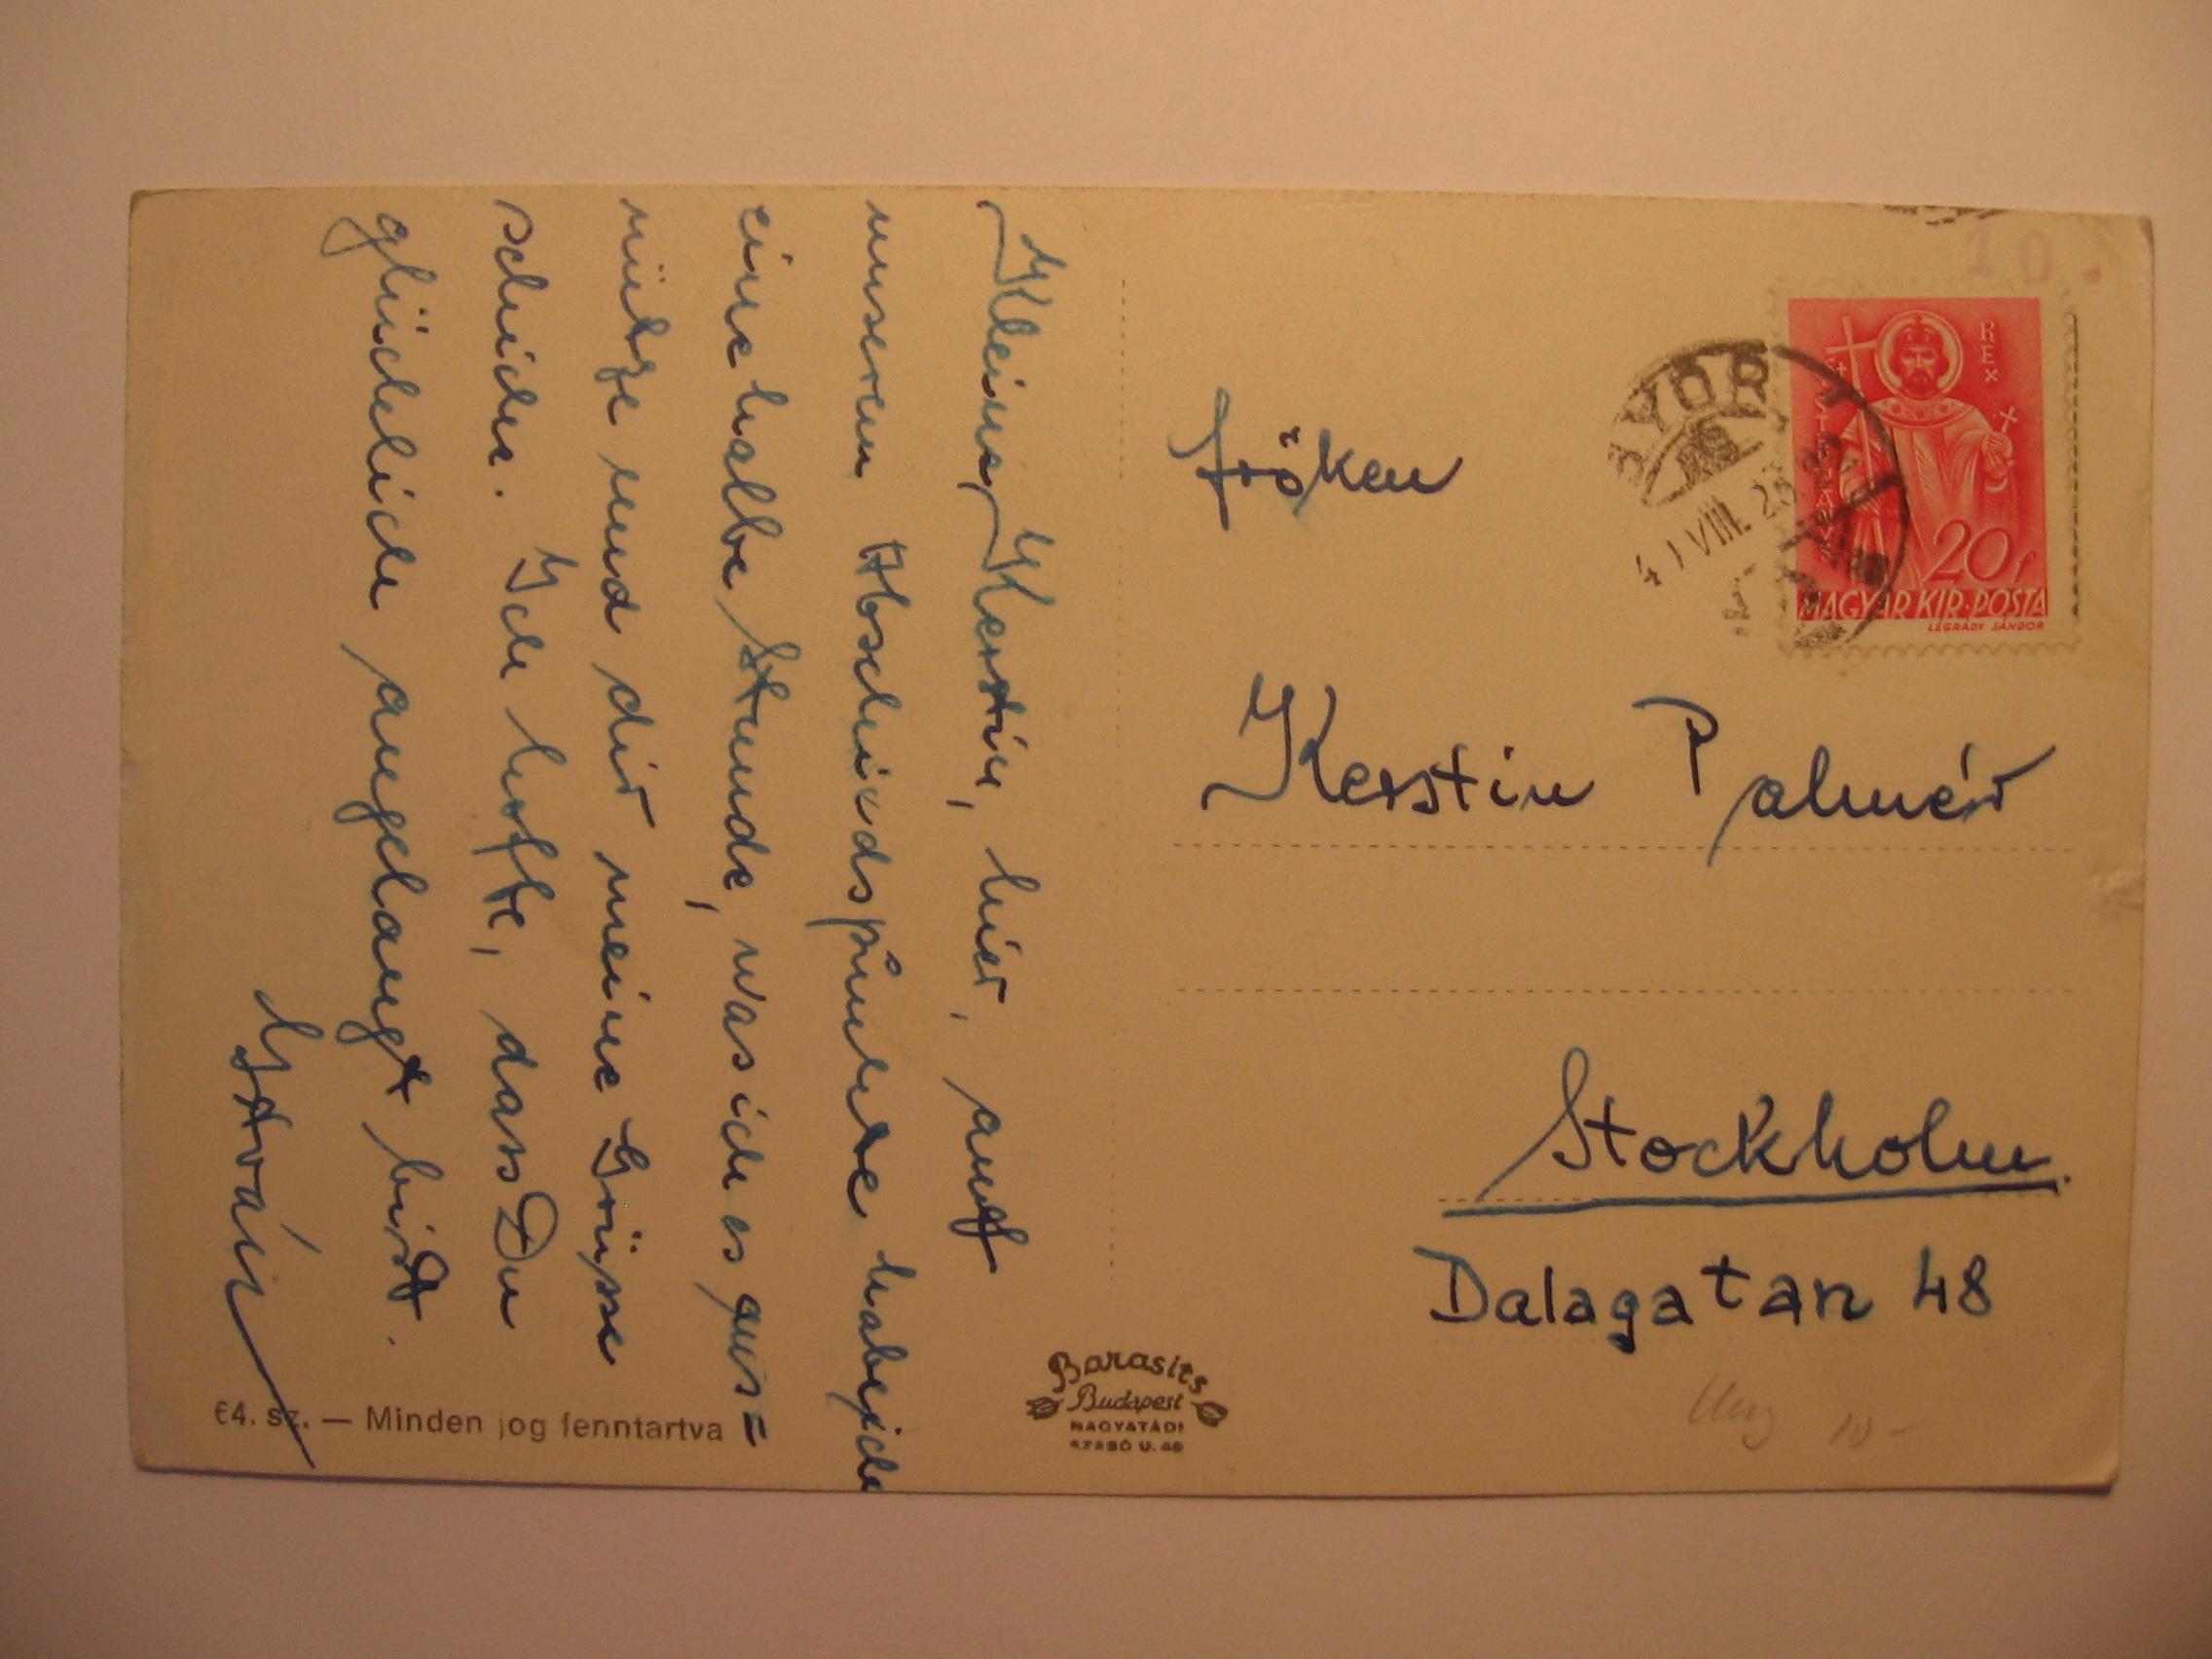 Kleine Kerstin, hier, auf
unserem Abschiedspunkte habe ich
eine halbe Stunde, was ich es aus=
nütze und dir meine Grüsse
schicke. Ich hoffe, dass Du
glücklich angelangt bist.
István
64. sz. — Minden jog fenntartva
Barasits
Budapest
NAGYATÁDI
SZABÓ U. 40
10.
REX
20f
MAGYAR KIR. POSTA
LÉGRÁDY SÁNDOR
GYŐR
41 VIII. 26
Fröken
Kerstin Palmér
Stockholm.
Dalagatan 48
Ung 10-